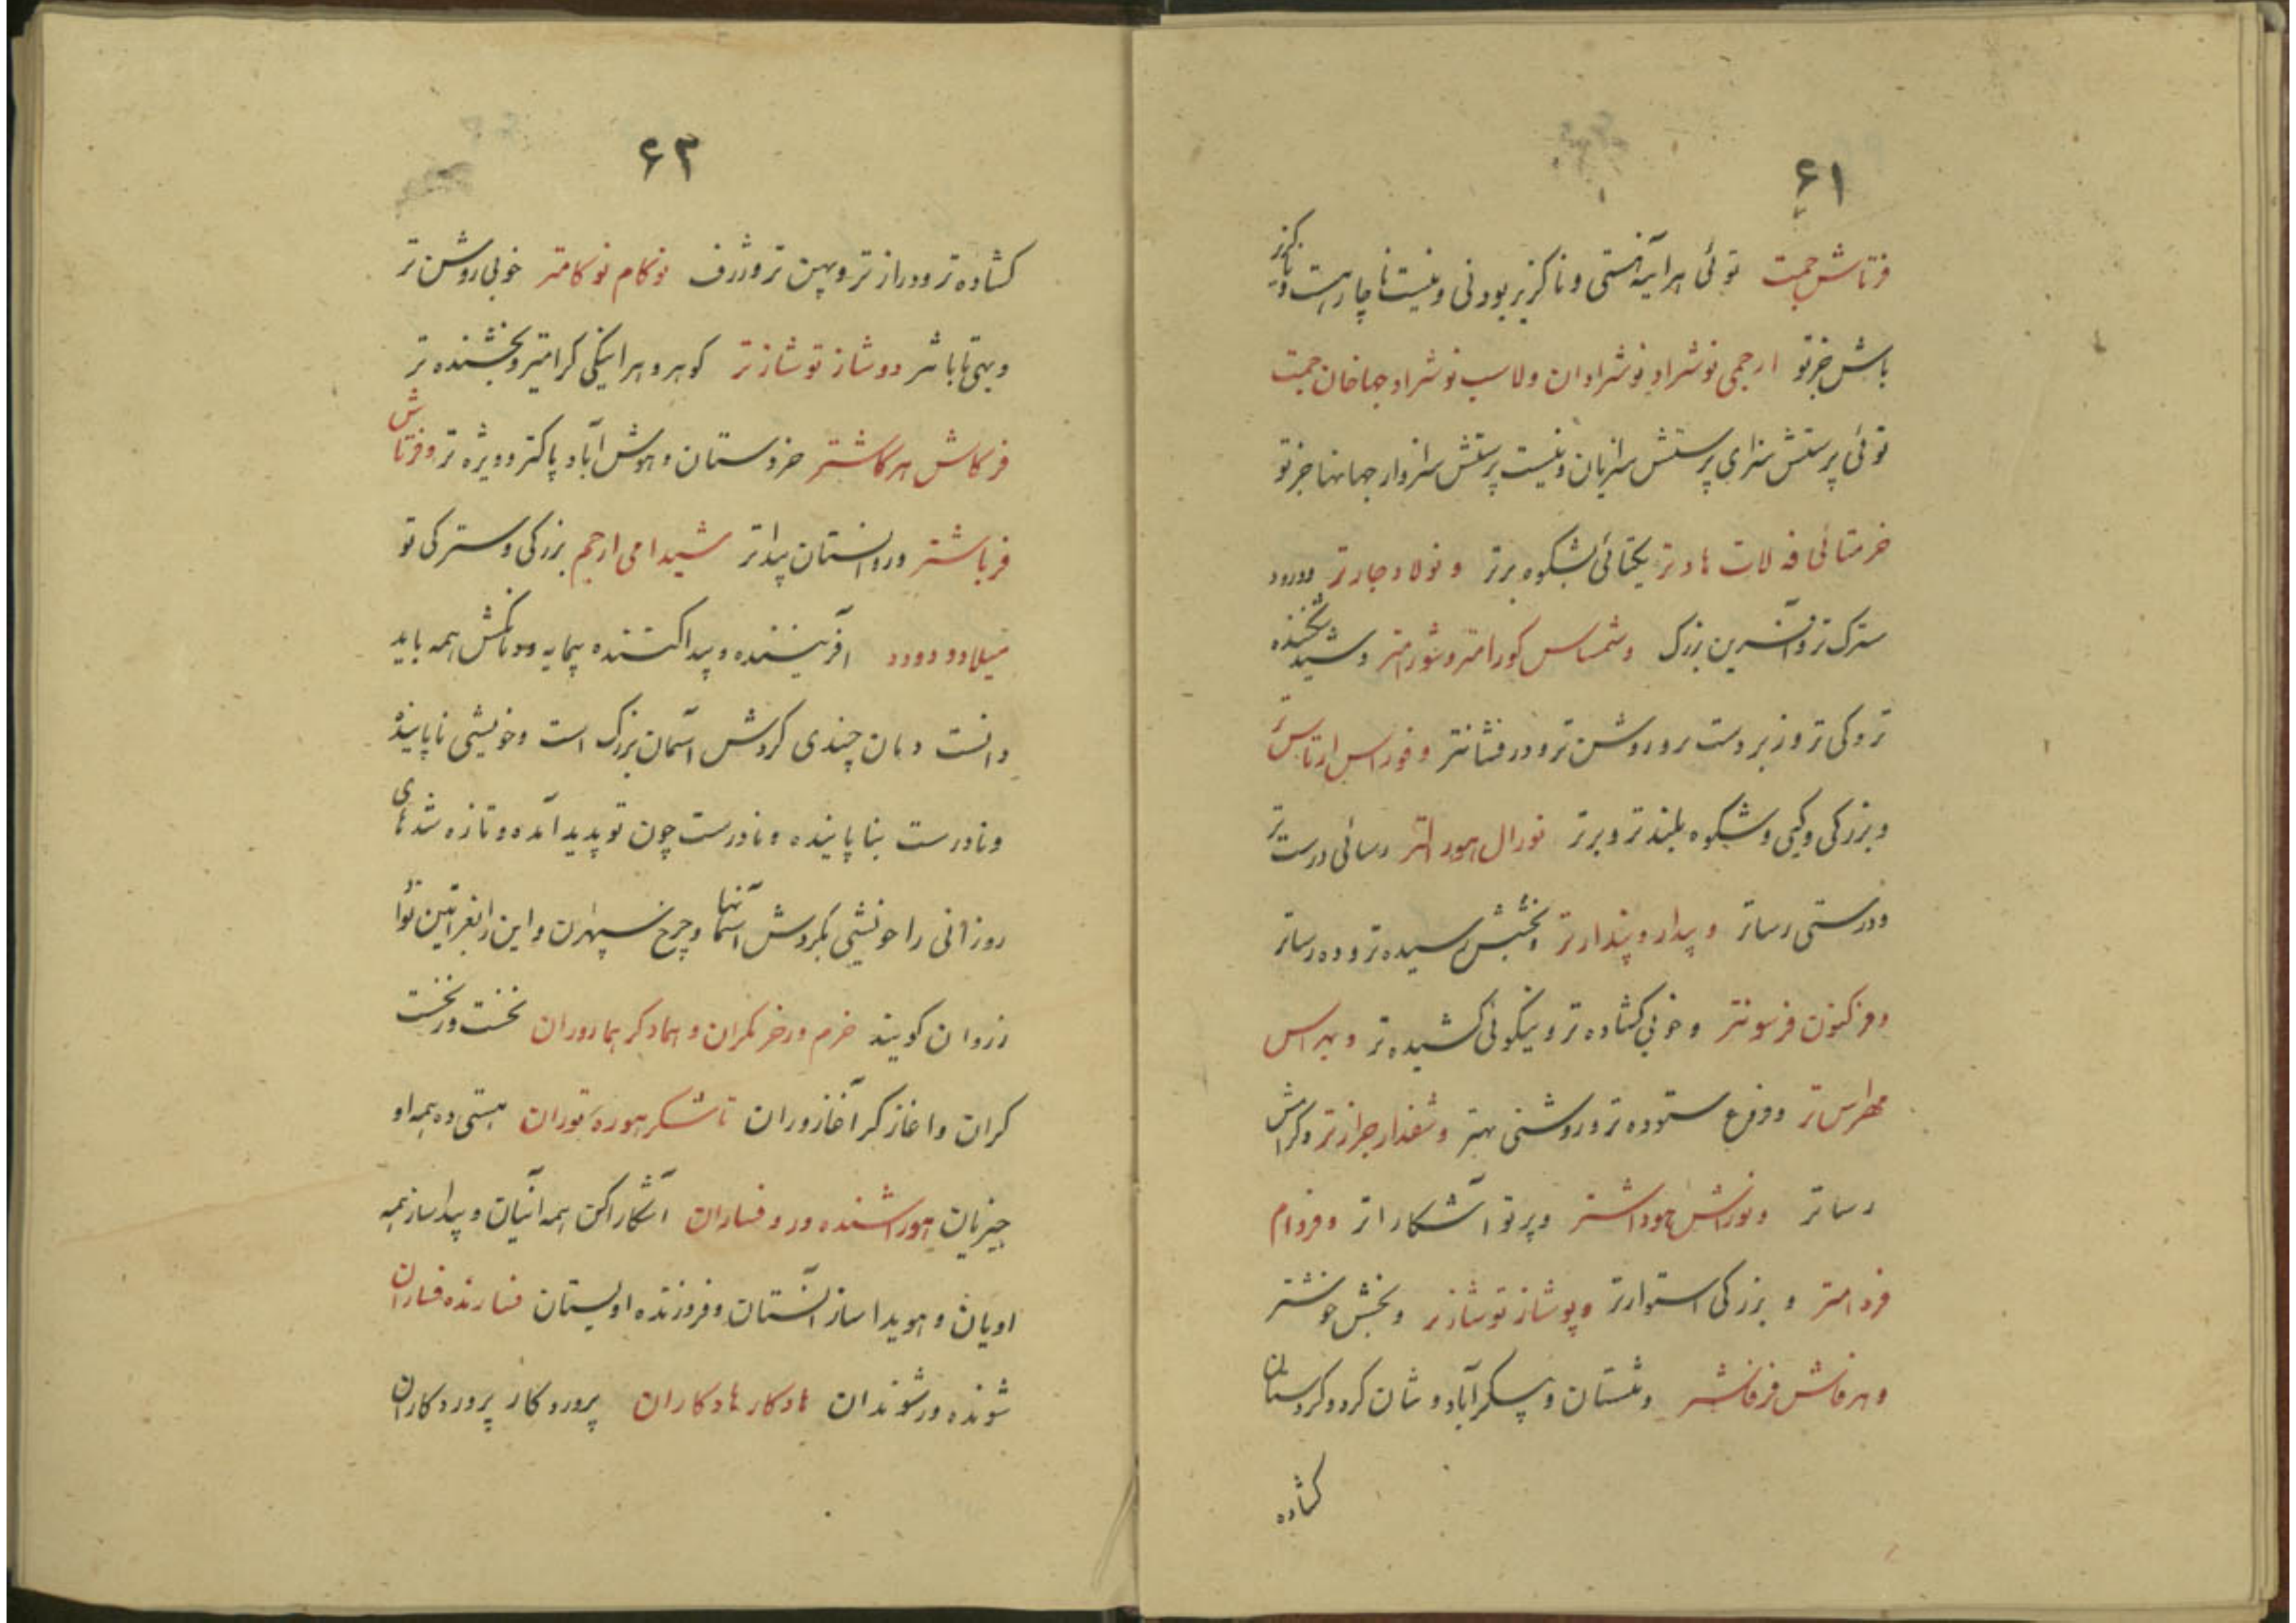 ۶۱
فرتاش جمت توئی هرآینه هستی و ناگزیر بودنی و نیست ناچار هست و ناگزیر
باش جز تو ارجمی نوشراد نوشرادان ولاب نوشراد جهاخان جمت
توئی پرستش سزای پرستش سزایان و نیست پرستش سزاوار جهانها جز تو
یکتائی بشکوه برتر و نولاد جادتر و درود
سترک تر و آفرین بزرگ و شماس و شید تخشنده
تر و کی تر و زبردست تر و روشن تر و درفشانتر
و بزرگی و کیی و شکوه بلندتر و برتر نورال هورالتر رسائی درست تر
و درستی رساتر و پدار و پندارتر و بخشش رسیده تر و ده رساتر
و فرکنون فرسونتر و خوبی گشاده تر و نیکوئی کشیده تر و بهراس
مهراس تر و فروغ ستوده تر و روشنی بهتر
رساتر و نوراش هوداشتر و پرتو آشکاراتر و فردام
فردامتر و بزرگی استوارتر و پوشاز توشازتر و بخش خوشتر
و هرفاش فرفاشتر و منستان و پیکرآباد و شان کرد و کردستان
گشاده
۶۳
کشاده تر و درازتر و پهن تر و ژرف نوکام نوکامتر خوبی روشن تر
و بهی تاباتر دوشاز توشازتر گوهر و هرآینگی گرامیتر و بخشنده تر
فرکاش هرکاشتر خردستان و هوش آباد پاکتر و ویژه تر و فرتاش
فرباشتر و روانستان پیداتر شیدامی ارجم بزرگی و سترگی تو
میلادو دورد آفریننده و پیدا کننده بیمایه و همه باید
دانست و مان چندی گردش آسمان بزرگ است و خویشی ناپاینده
و نادرست بناپاینده و نادرست چون نو پدید آمده و تازه شدهای
روزانی را خویشی بگردش آسمانها و چرخ سپهران و این را بفراتین نوا
زروان گویند خرم ورخر مکران و هماد کر هماروران نخست ور نخست
کران و آغازگر آغازوران تاشکر هوره توران هستی ده همه او
چیزیان هوراشنده ور و فساران آشکارا کن همه آنیان و پیدا ساز همه
اویان و هویدا ساز آنستان و فروزنده اویستان فسارنده فساران
شونده ور شوندان هادکار هادکاران پروردکار پروردکاران